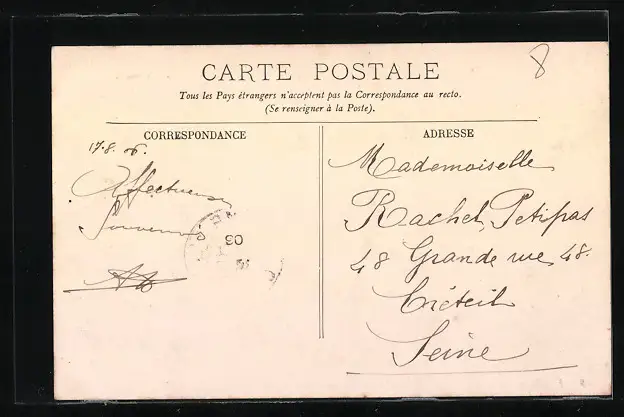 8
CARTE POSTALE
Tous les Pays étrangers n'acceptent pas la Correspondance au recto.
(Se renseigner à la Poste).
CORRESPONDANCE
ADRESSE
17.8.06.
Affectueux
Souvenirs
Mademoiselle
Rachel Petitpas
48 Grande rue 48.
Créteil
Seine